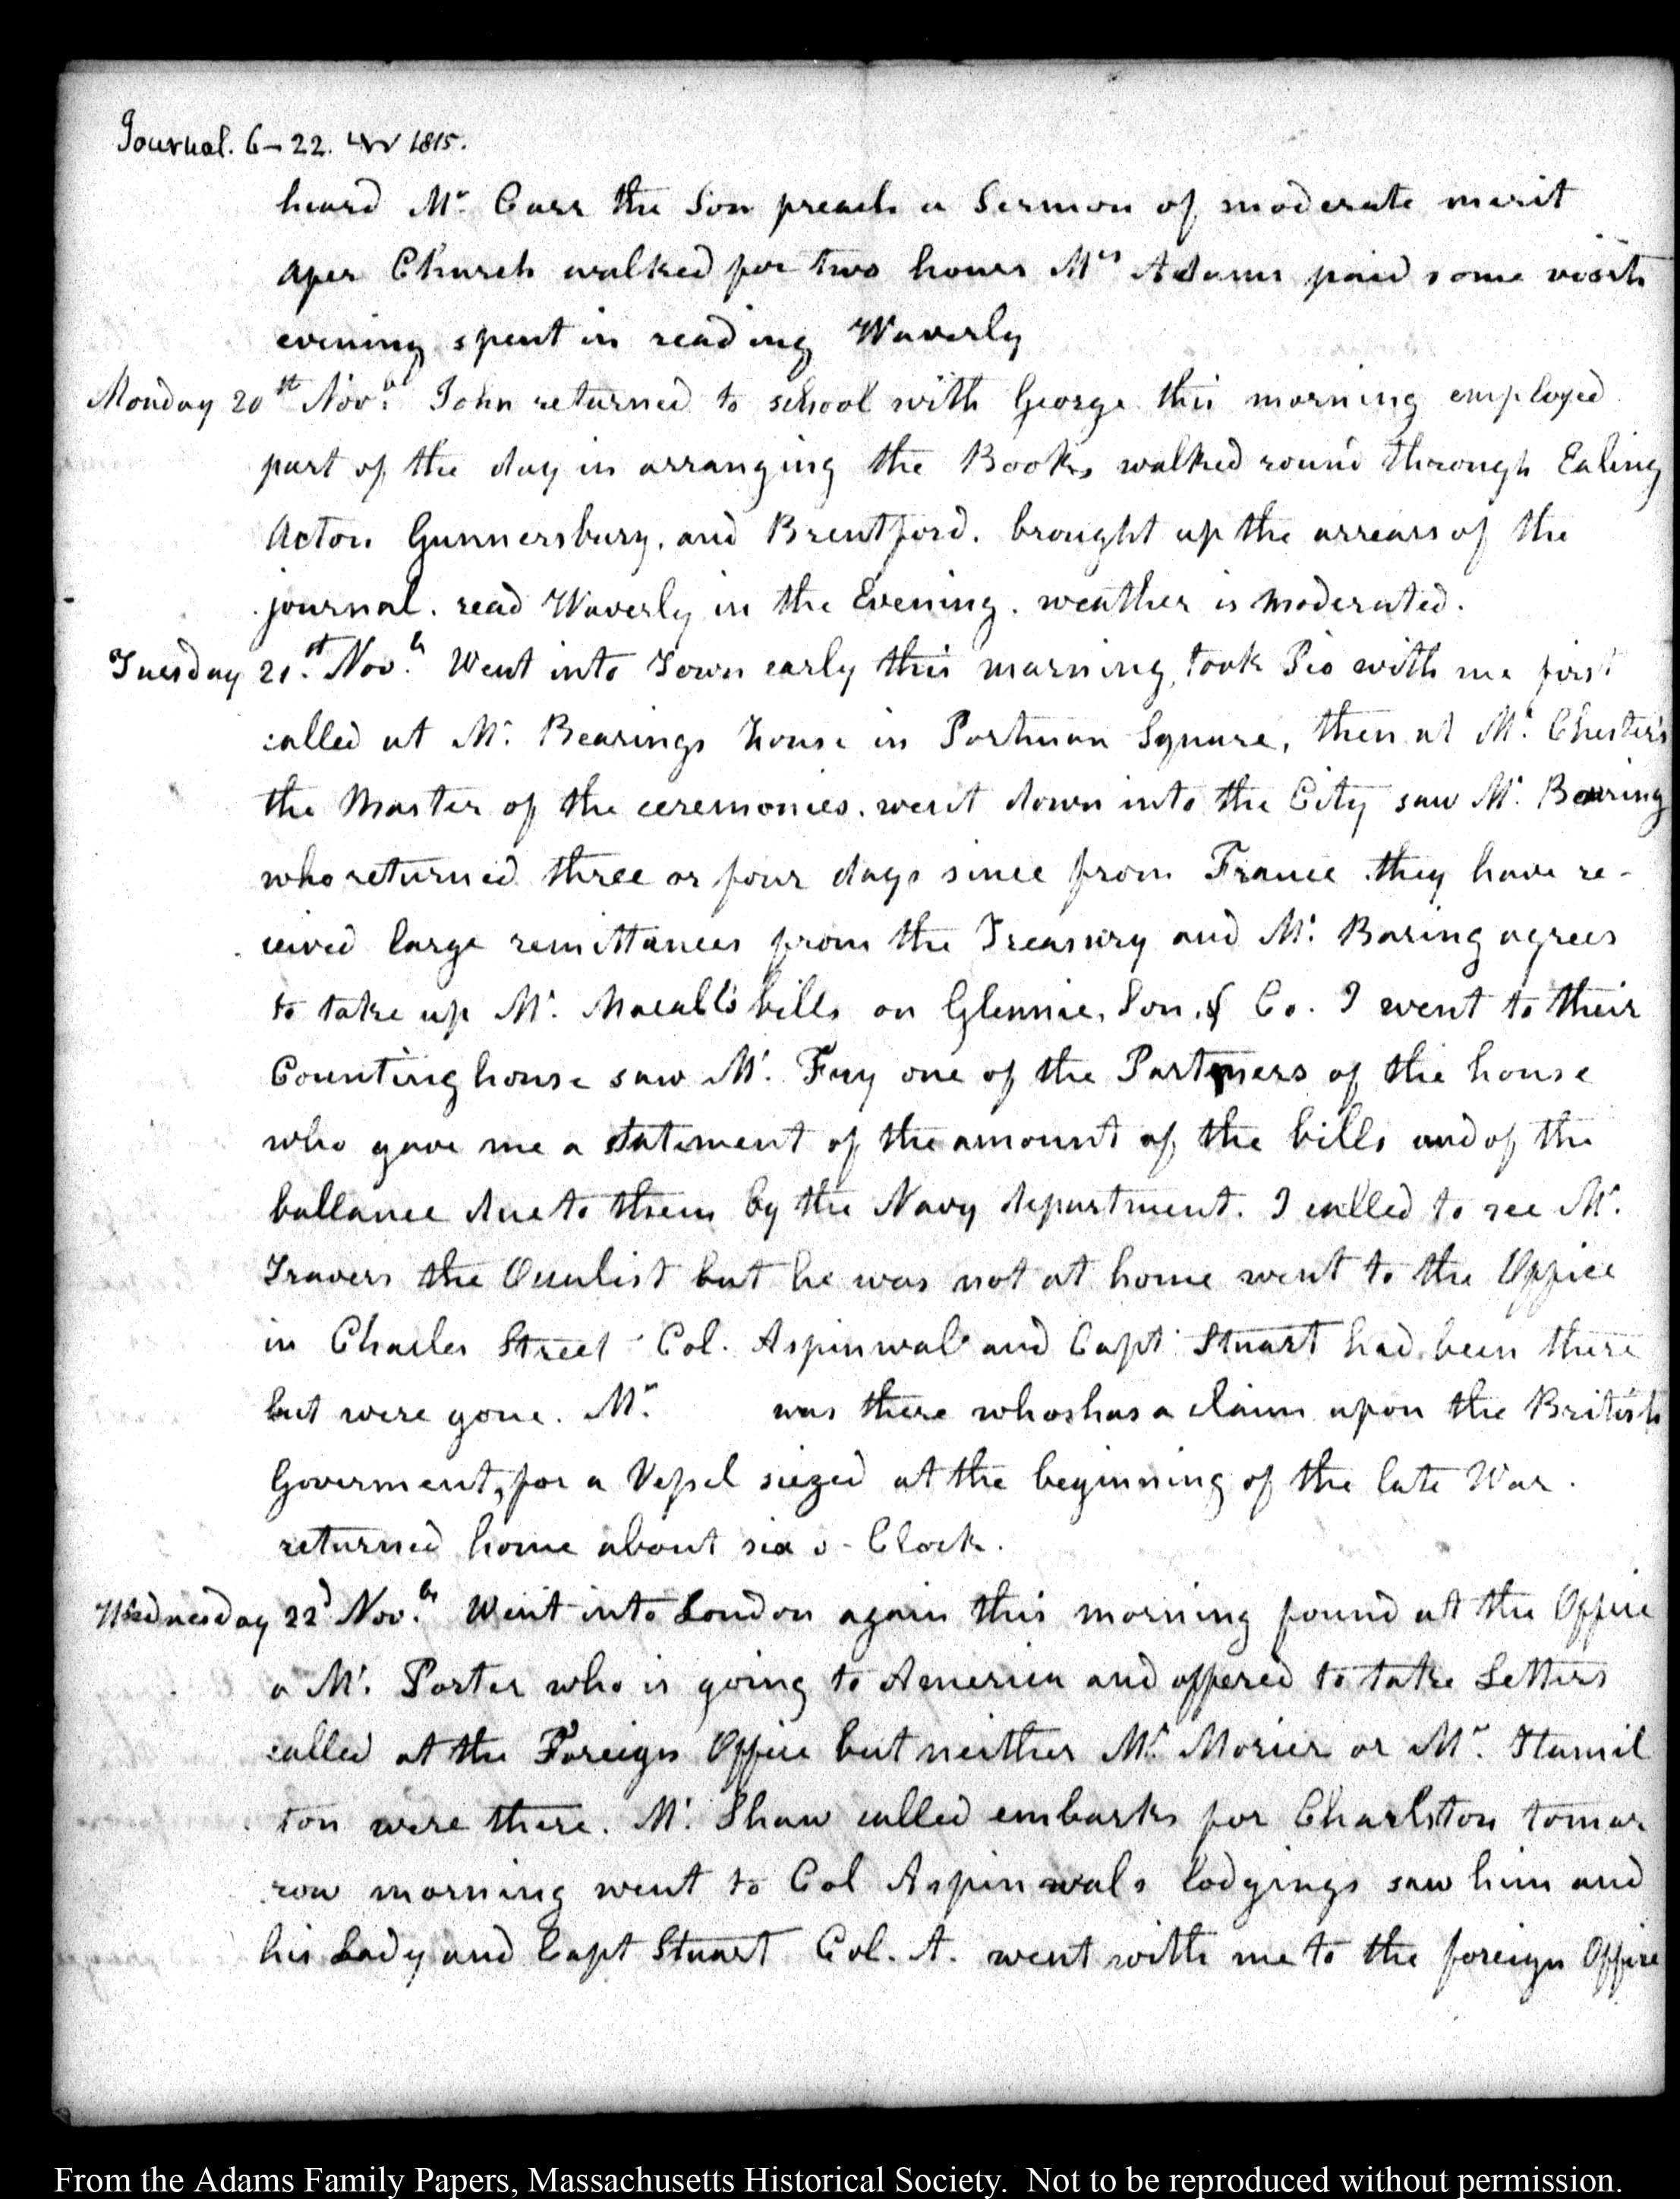 Journal. 6–22. Nov 1815.
heard Mr Carr the Son preach a Sermon of moderate merit
after Church walked for two hours Mrs Adams paid some visits
evening spent in reading Waverly
Monday 20st Novr. John returned to school with George this morning employed
part of the day in arranging the Books walked round through Ealing
Acton Gunnersbury, and Brentford. brought up the arrears of the
journal. read Waverly in the Evening. weather is moderated.
Tuesday 21.st Nov.h Went into Town early this morning, took Pio with me first
called at Mr. Bearings house in Portman Square, then at Mr. Chester's
the Master of the ceremonies. went down into the City saw Mr. Baring
who returned three or four days since from France they have re-
ceived large remittances from the Treasury and Mr. Baring agrees
to take up Mr. Macall's bills on Glennie, Son, & Co. I went to their
Counting house saw Mr. Fry one of the Partners of the house
who gave me a statement of the amount of the bills and of the
ballance due to them by the Navy department. I called to see Mr.
Travers the Oculist but he was not at home went to the Office
in Charles Street Col. Aspinwal and Capt Stuart had been there
but were gone. Mr. was there who has a claim upon the British
Goverment, for a Vessel siezed at the beginning of the late War.
returned home about six o-Clock.
Wednesday 22d Nov.h Went into London again this morning found at the Office
a Mr. Porter who is going to America and offered to take Letters
called at the Foreign Office but neither Mr. Morier or Mr. Hamil
ton were there. Mr. Shaw called embarks for Charlston tomar
row morning went to Col Aspinwals lodgings saw him and
his Lady and Capt Stuart Col. A. went with me to the foreign Office
From the Adams Family Papers, Massachusetts Historical Society. Not to be reproduced without permission.